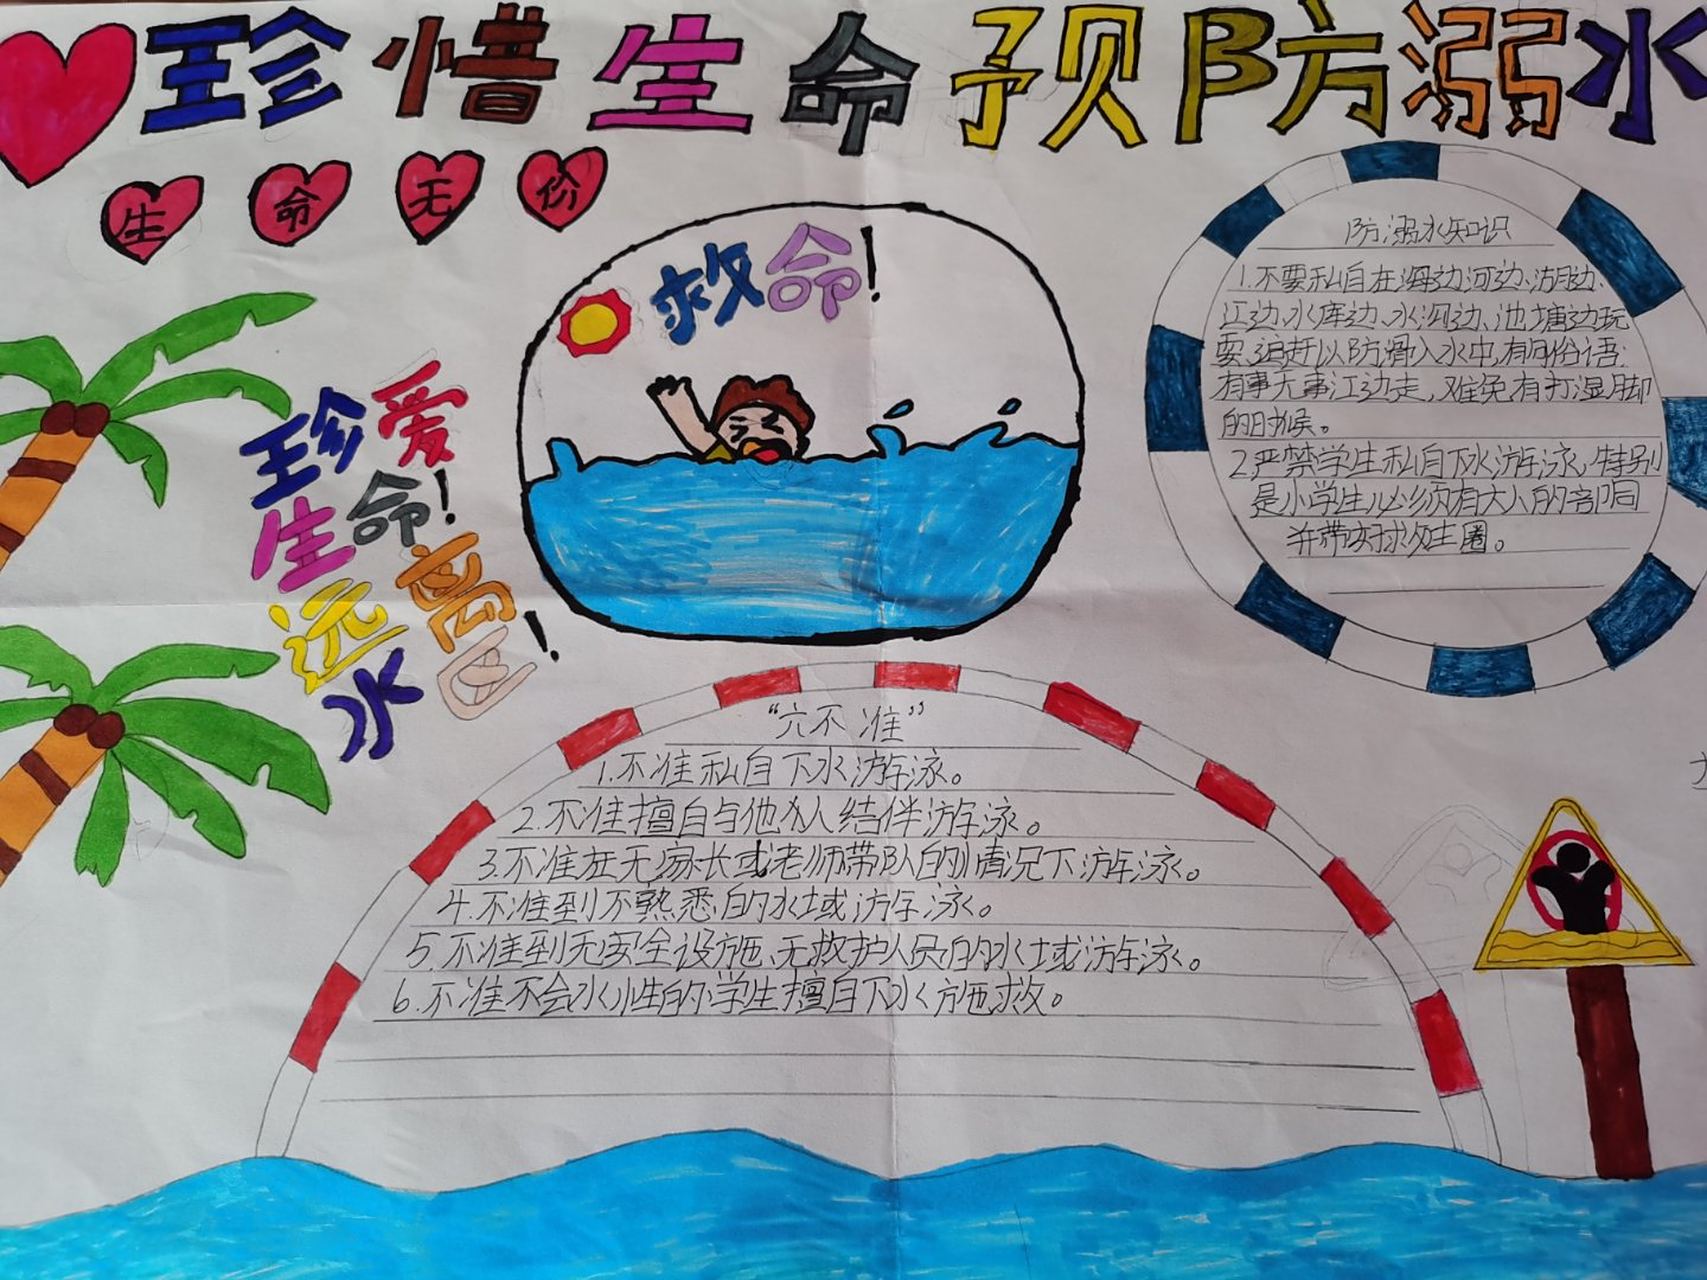 珍惜生命预防溺水
生命无价
救命!
防溺水知识
1.不要私自在海边、河边、湖边、
江边、水库边、水沟边、池塘边玩
耍、追赶以防滑入水中,有句俗语:
有事无事江边走,难免有打湿脚
的时候。
2.严禁学生私自下水游泳,特别
是小学生必须有大人的陪同
并带好救生圈。
珍爱
生命!
远离
水区!
“六不准”
1.不准私自下水游泳。
2.不准擅自与他人结伴游泳。
3.不准在无家长或老师带队的情况下游泳。
4.不准到不熟悉的水域游泳。
5.不准到无安全设施、无救护人员的水域游泳。
6.不准不会水性的学生擅自下水施救。